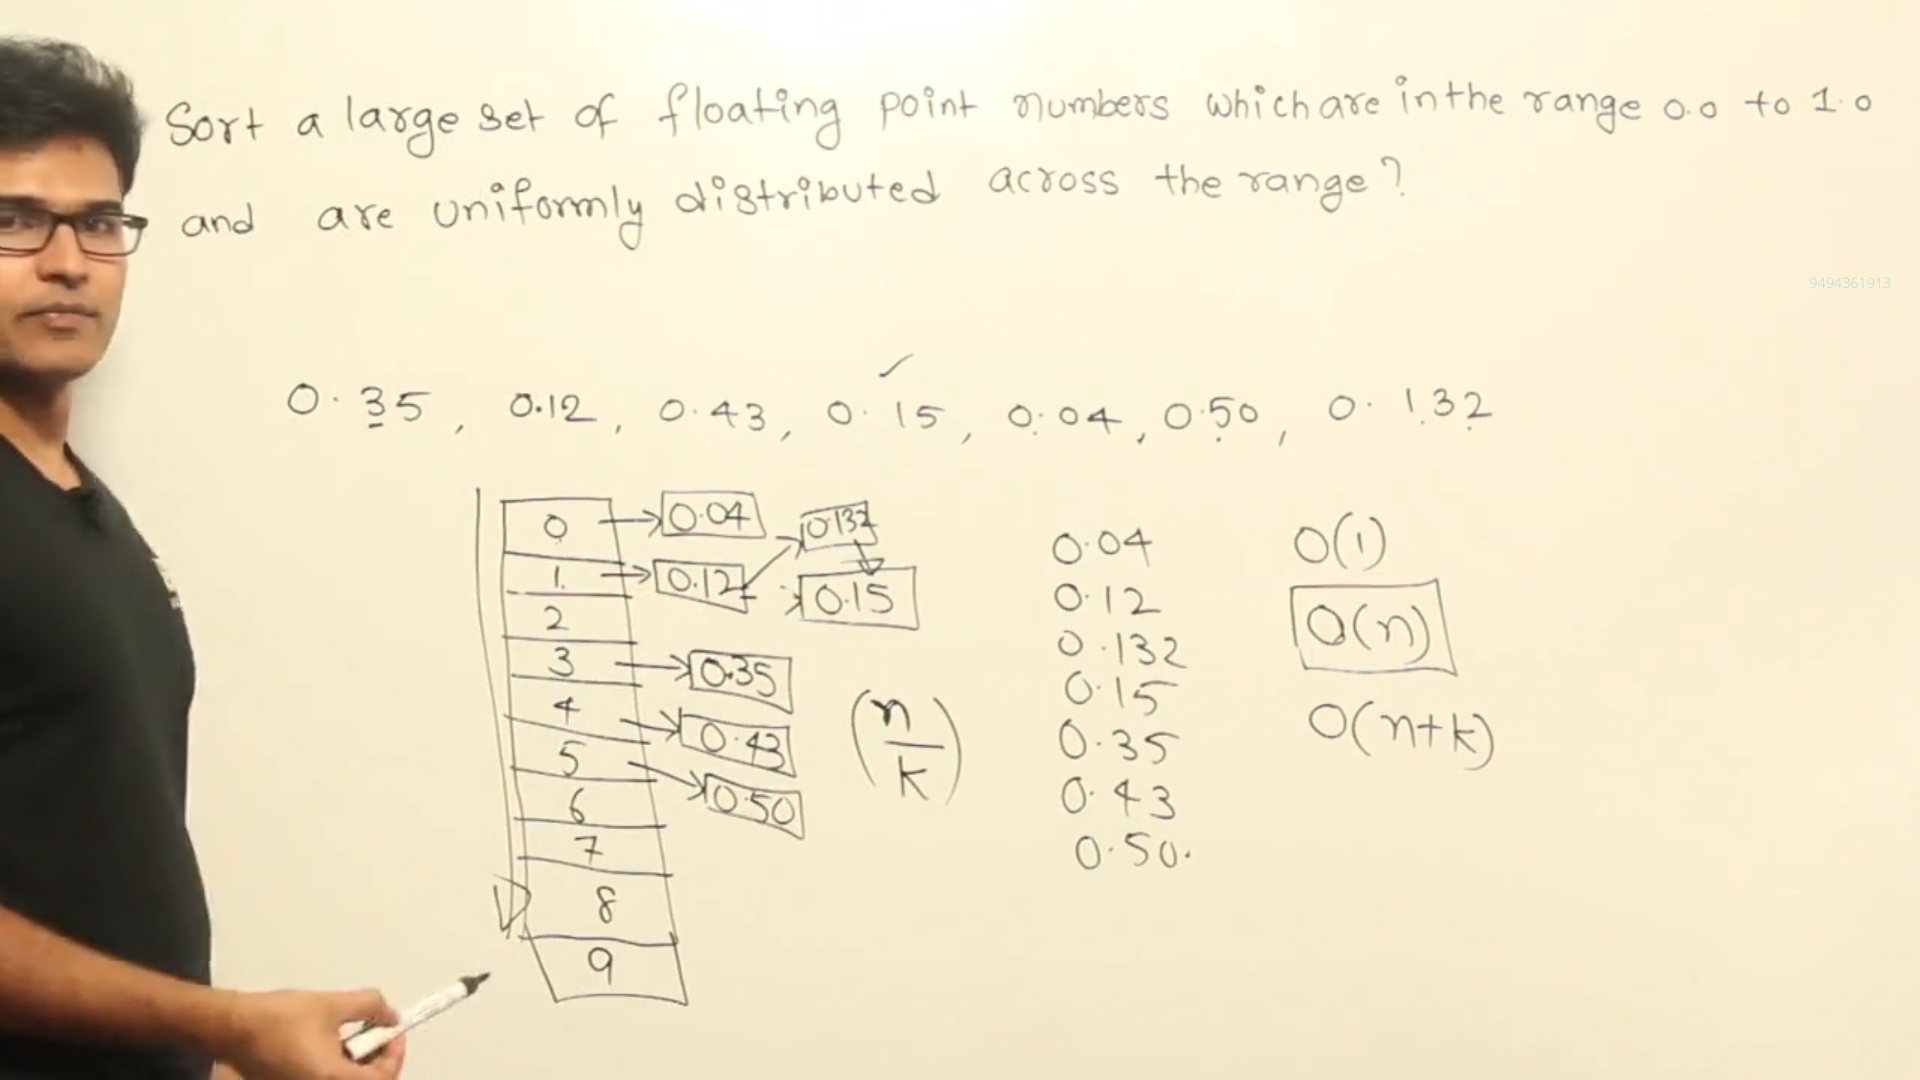 Sort a large set of floating point numbers which are in the range 0.0 to 1.0
and are uniformly distributed across the range?
9494361913
0.35, 0.12, 0.43, 0.15, 0.04, 0.50, 0.132
0 0.04 0.132
1 0.12 0.15
2
3 0.35
4 0.43
5 0.50
6
7
8
9
(n/k)
0.04
0.12
0.132
0.15
0.35
0.43
0.50.
O(1)
O(n)
O(n+k)